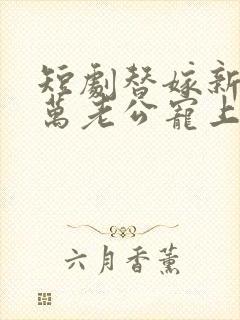 短劇替嫁新
萬老公寵上
六月香薰